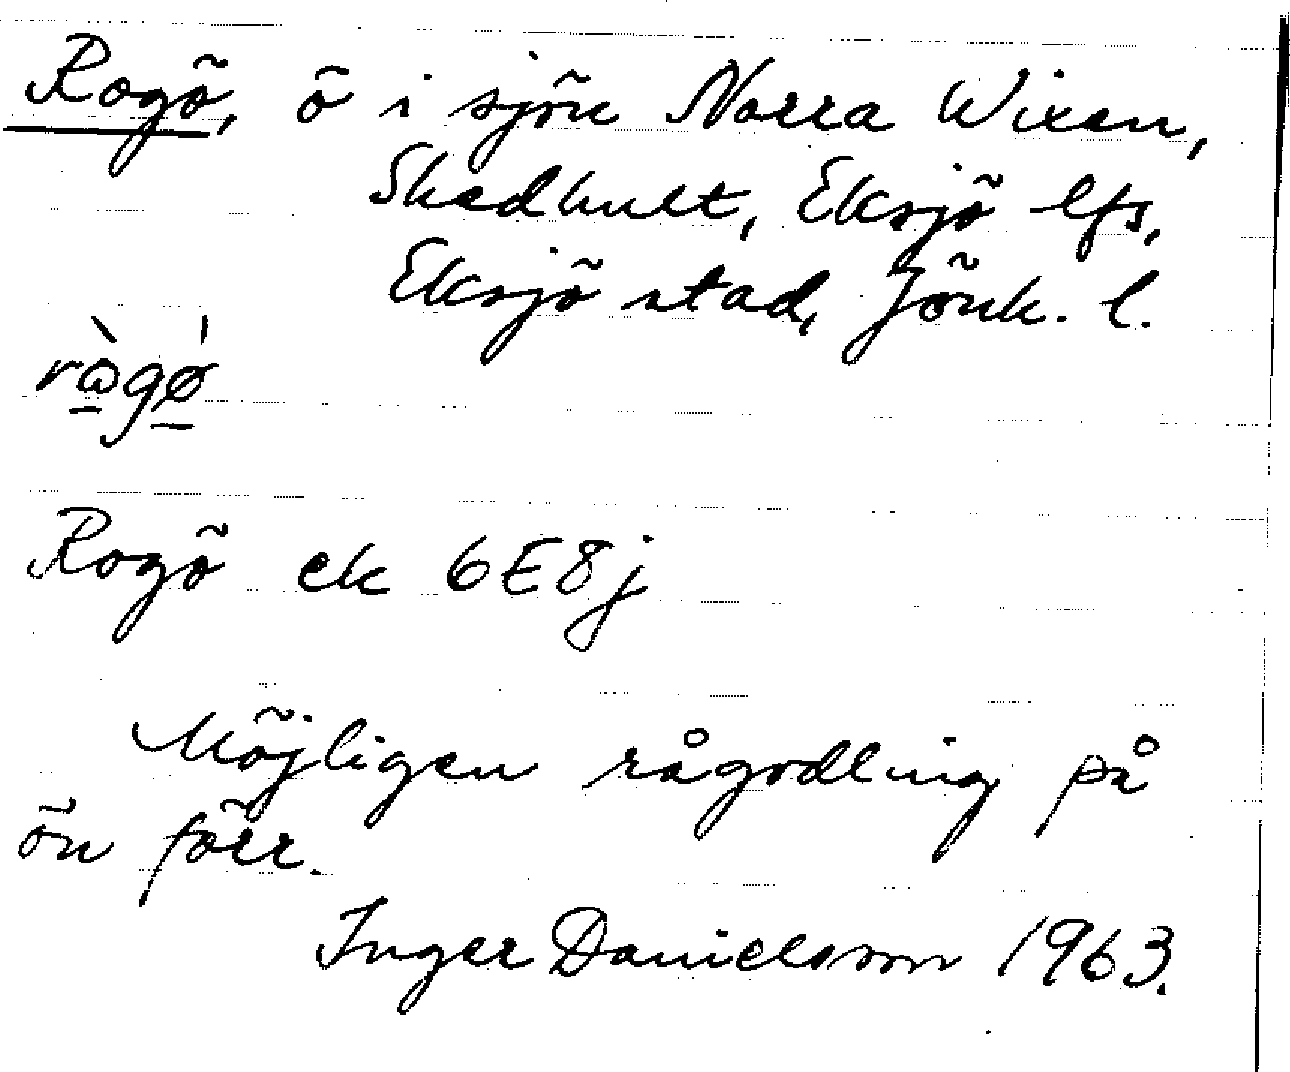 Rogö, ö i sjön Norra Wixen,
Skedhult, Eksjö lfs,
Eksjö stad, Jönk. l.
rògǿ
Rogö ek 6E8j
Möjligen rågodling på
ön förr.
Inger Danielsson 1963.